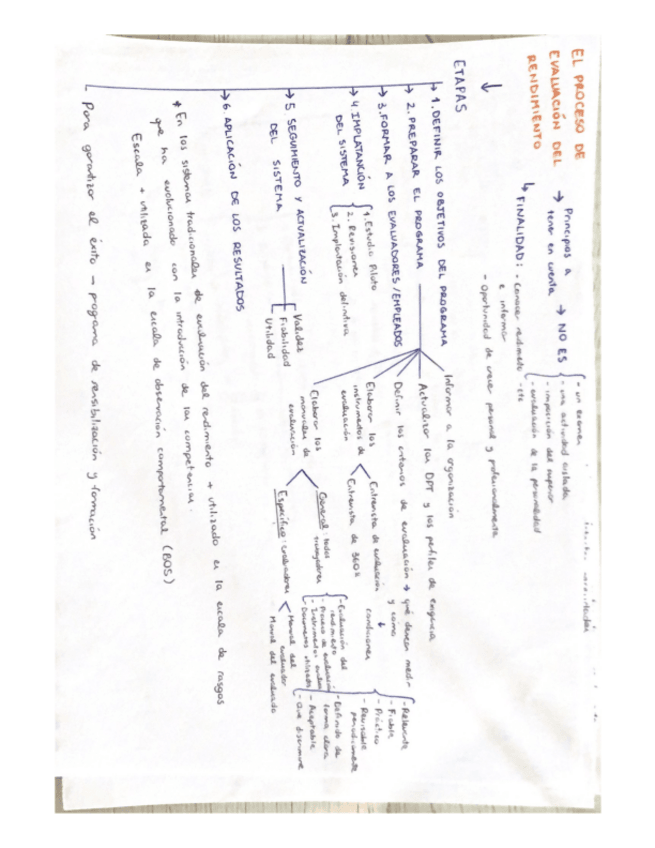 EL PROCESO DE
EVALUACIÓN DEL
RENDIMIENTO
→ Principios a
tener en cuenta → NO ES
- un examen
- una actividad aislada
- imposición del superior
- evaluación de la personalidad
↳ FINALIDAD: - Conocer rendimeto - etc
e informar
- Oportunidad de crecer personal y profesionalmente
↓
ETAPAS
→ 1. DEFINIR LOS OBJETIVOS DEL PROGRAMA
→ 2. PREPARAR EL PROGRAMA
Informar a la organización
Actualizar las DPT y los perfiles de exigencia
Definir los criterios de evaluación → qué deben medir
y como
↓
condiciones
- Relevante
- Fiable
- Práctico
- Revisable
periodicamente
- Definido de
forma clara
- Aceptable
- Que discrimine
Elaborar los
instrumentos de
evaluación
Entrevista de evaluación
Entrevista de 360º
Elaborar los
manuales de
evaluación
General: todos
trabajadores
- Evaluación del
rendimiento
- Proceso de evaluación
- Documentos utilizados
Específico: evaluadores
Manual del
evaluador
Manual del evaluado
→ 3. FORMAR A LOS EVALUADORES/EMPLEADOS
→ 4. IMPLATANCIÓN
DEL SISTEMA
1. Estudio Piloto
2. Revisiones
3. Implantación definitiva
→ 5 SEGUIMIENTO Y ACTUALIZACIÓN
DEL SISTEMA
Validez
Fiabilidad
Utilidad
→ 6 APLICACIÓN DE LOS RESULTADOS
* En los sistemas tradicionales de evaluación del rendimiento + utilizado es la escala de rasgos
que ha evolucionado con la introducción de las competencias.
Escala + utilizada es la escala de observación comportamental (BOS)
Para garantizar el éxito → programa de sensibilización y formación